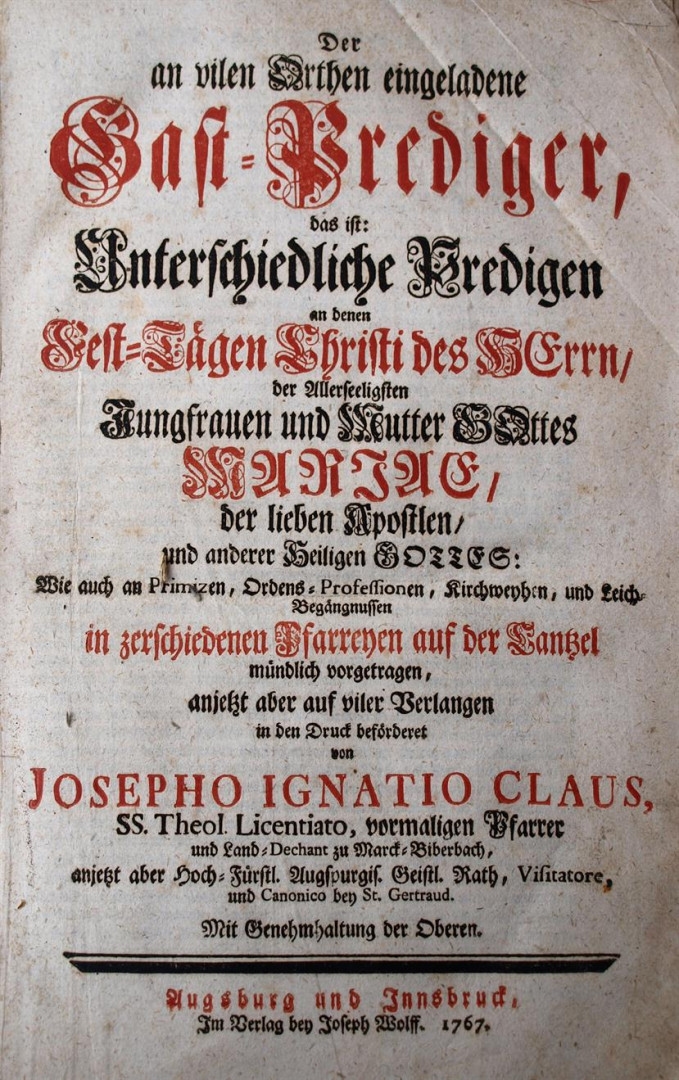 Der
an vilen Orthen eingeladene
Gast-Prediger,
das ist:
Unterschiedliche Predigen
an denen
Fest-Tägen Christi des HErrn/
der Allerseeligsten
Jungfrauen und Mutter GOttes
MARIAE/
der lieben Apostlen/
und anderer Heiligen GOTTES:
Wie auch an Primizen, Ordens-Professionen, Kirchweyhen, und Leich-
Begängnussen
in zerschiedenen Pfarreyen auf der Cantzel
mündlich vorgetragen,
anjetzt aber auf viler Verlangen
in den Druck beförderet
von
JOSEPHO IGNATIO CLAUS,
SS. Theol. Licentiato, vormaligen Pfarrer
und Land-Dechant zu Marck-Biberbach,
anjetzt aber Hoch-Fürstl. Augspurgis. Geistl. Rath, Visitatore,
und Canonico bey St. Gertraud.
Mit Genehmhaltung der Oberen.
Augsburg und Innsbruck,
Im Verlag bey Joseph Wolff. 1767.